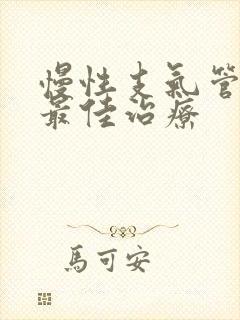 慢性支氣管
最佳治療
馬可安